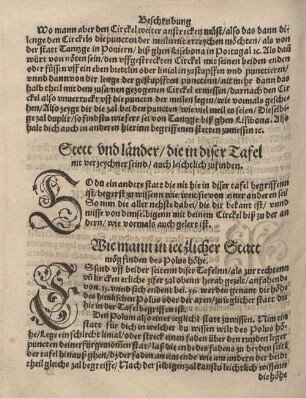 Beschreibung
Wo mann aber den Circkel weiter anstrecken müst/also das dann die
lenge des Circkels die puncten der meil nit erreychen möchten/ als von
der statt Tantzge in Poniern/ biß ghen Lisebona in Portugal ꝛc. Als dañ
würt von nöten sein/ den vffgestreckten Circkel mit seinen beiden enden
oder füssen vff ein eben brettlin oder linial zu stupffen vnd punctieren/
vnnd dann von der lenge der gestupfften puncten/ nit mehr dann das
halb theil mit dem zusamen gezognen Circkel ermessen/ darnach den Cir
ckel also vnuerruckt vff die puncten der meilen legen/ wie vormals geschehen/
Also zeygt dir die zal bei den puncten/ wie vil meil es seien/ Die selbi
ge zal duplir/ so findstu wie fer sei von Tantzge biß ghen Lisbona. Al
so halt dich auch in anderen hierinn begriffenen stetten zumessen ꝛc.
Stett vnd länder/ die in diser Tafel
nit verzeychnet seind/ auch leichtlich zufinden.
SO dir ein andere statt die nit hie in diser tafel begriffenn
ist/ begerst zu wissenn wie weit sie von einer anderen sei/
So nim die aller nechste dabei/ die dir bekant ist/ vnnd
misse von demselbigenn mit deinem Circkel biß zu der an
dern/ wie vormals auch gelert ist.
Wie mann in ietzlicher Statt
mög finden des Polus höhe.
ES seind vff beider seitenn diser Tafelnn/ als zur rechtenn
vñ lincken etliche zifer zal obenn herab gsetzt/ anfahende
von vnnd sich endent bei 55. werden genant die höhe
des himlischen Polus oder der axen/ zu ieglicher statt die
hie in der Tafel begriffen ist.
Den Polum also einer ieglicht statt zuwissen. Nim ein
statt für dich in welcher du wissen wilt des Polus hö
he/ Lege ein schlecht linial/ oder streck einen faden über den runden leger
puncten deiner fürgenom̃en statt/ laß die ende des fadens zu beiden seitẽ
der tafel hinauß ghen/ dz der faden an eim ende wie am andern der beide
theil gleich zutreffen/ Nach der selbigen zal kanstu leichtlich wissenn
die höhe